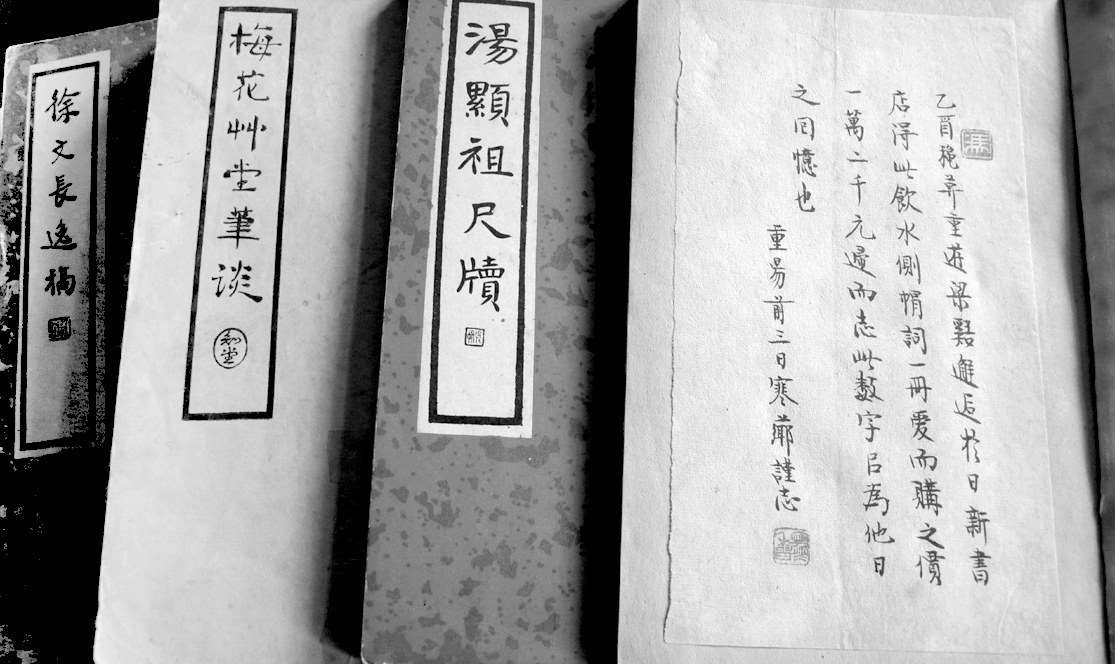 徐文長逸稿
梅花艸堂筆談
知堂
湯顯祖尺牘
乙酉穐弄重遊梁谿邂逅於日新書
店得此飲水側帽詞一冊愛而購之價
一萬二千元邊而志此数字㠯為他日
之回憶也
重昜前三日寒 謹志